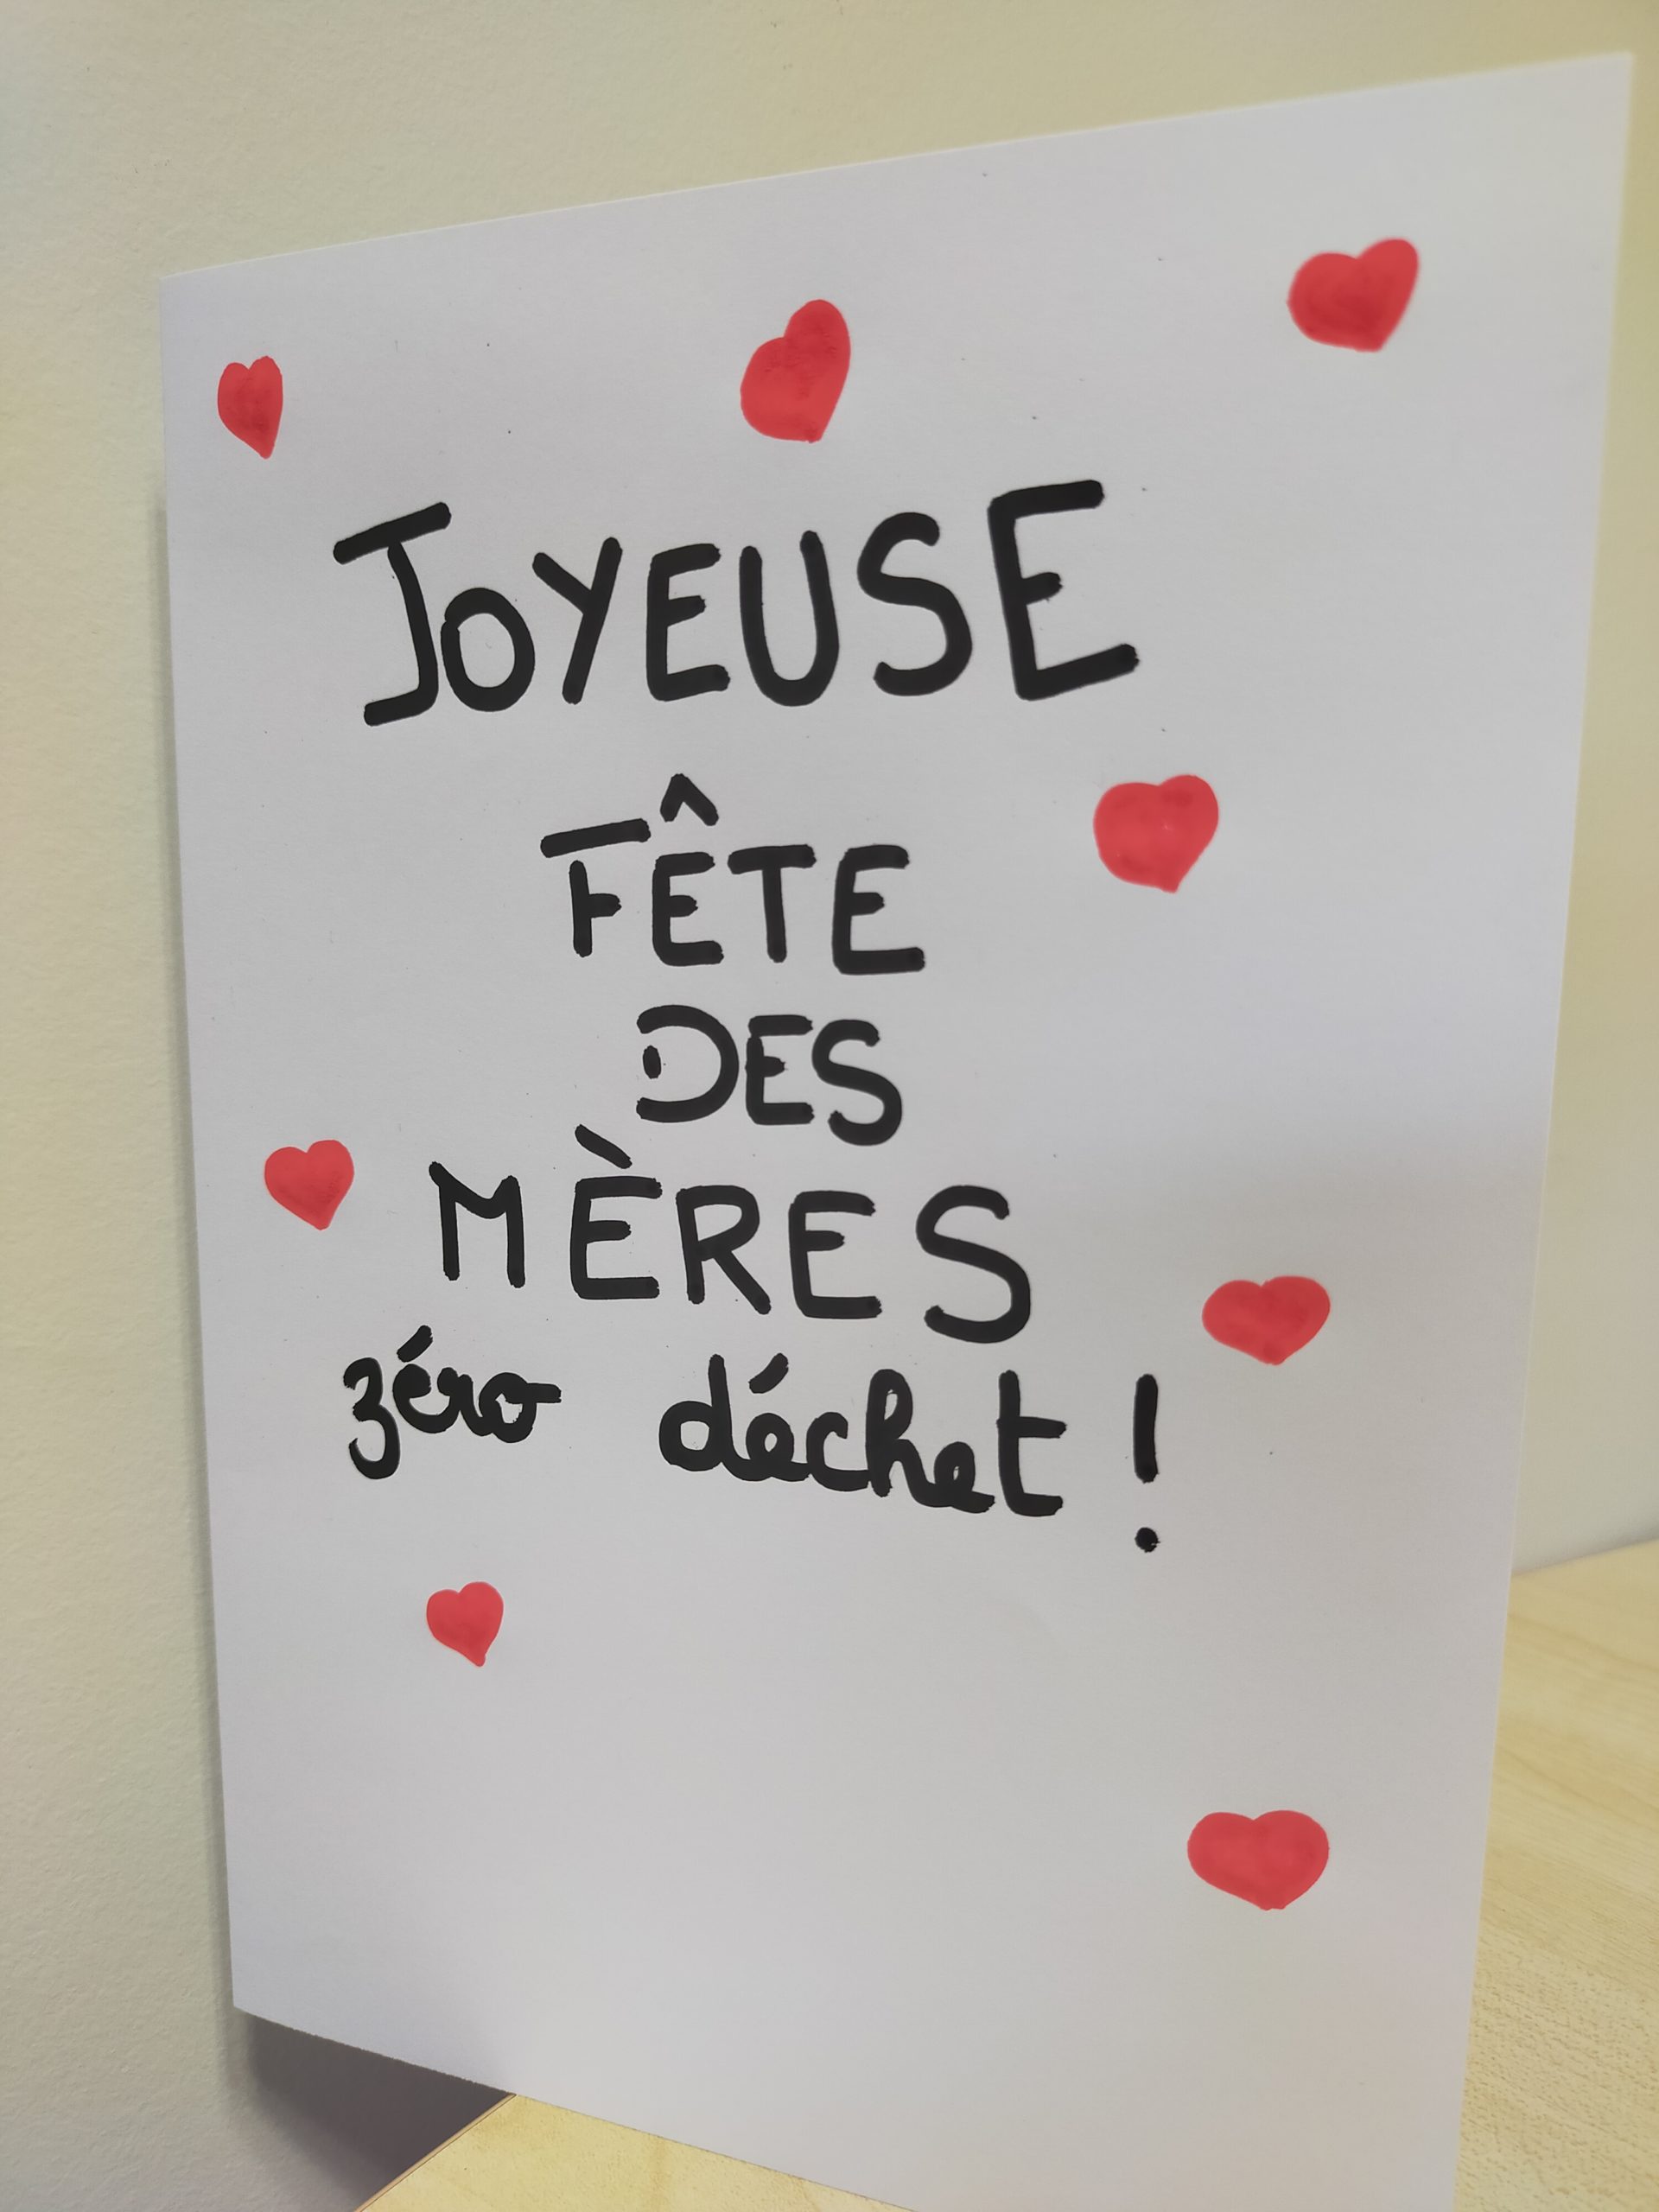 JOYEUSE
FÊTE
DES
MÈRES
zéro déchet !